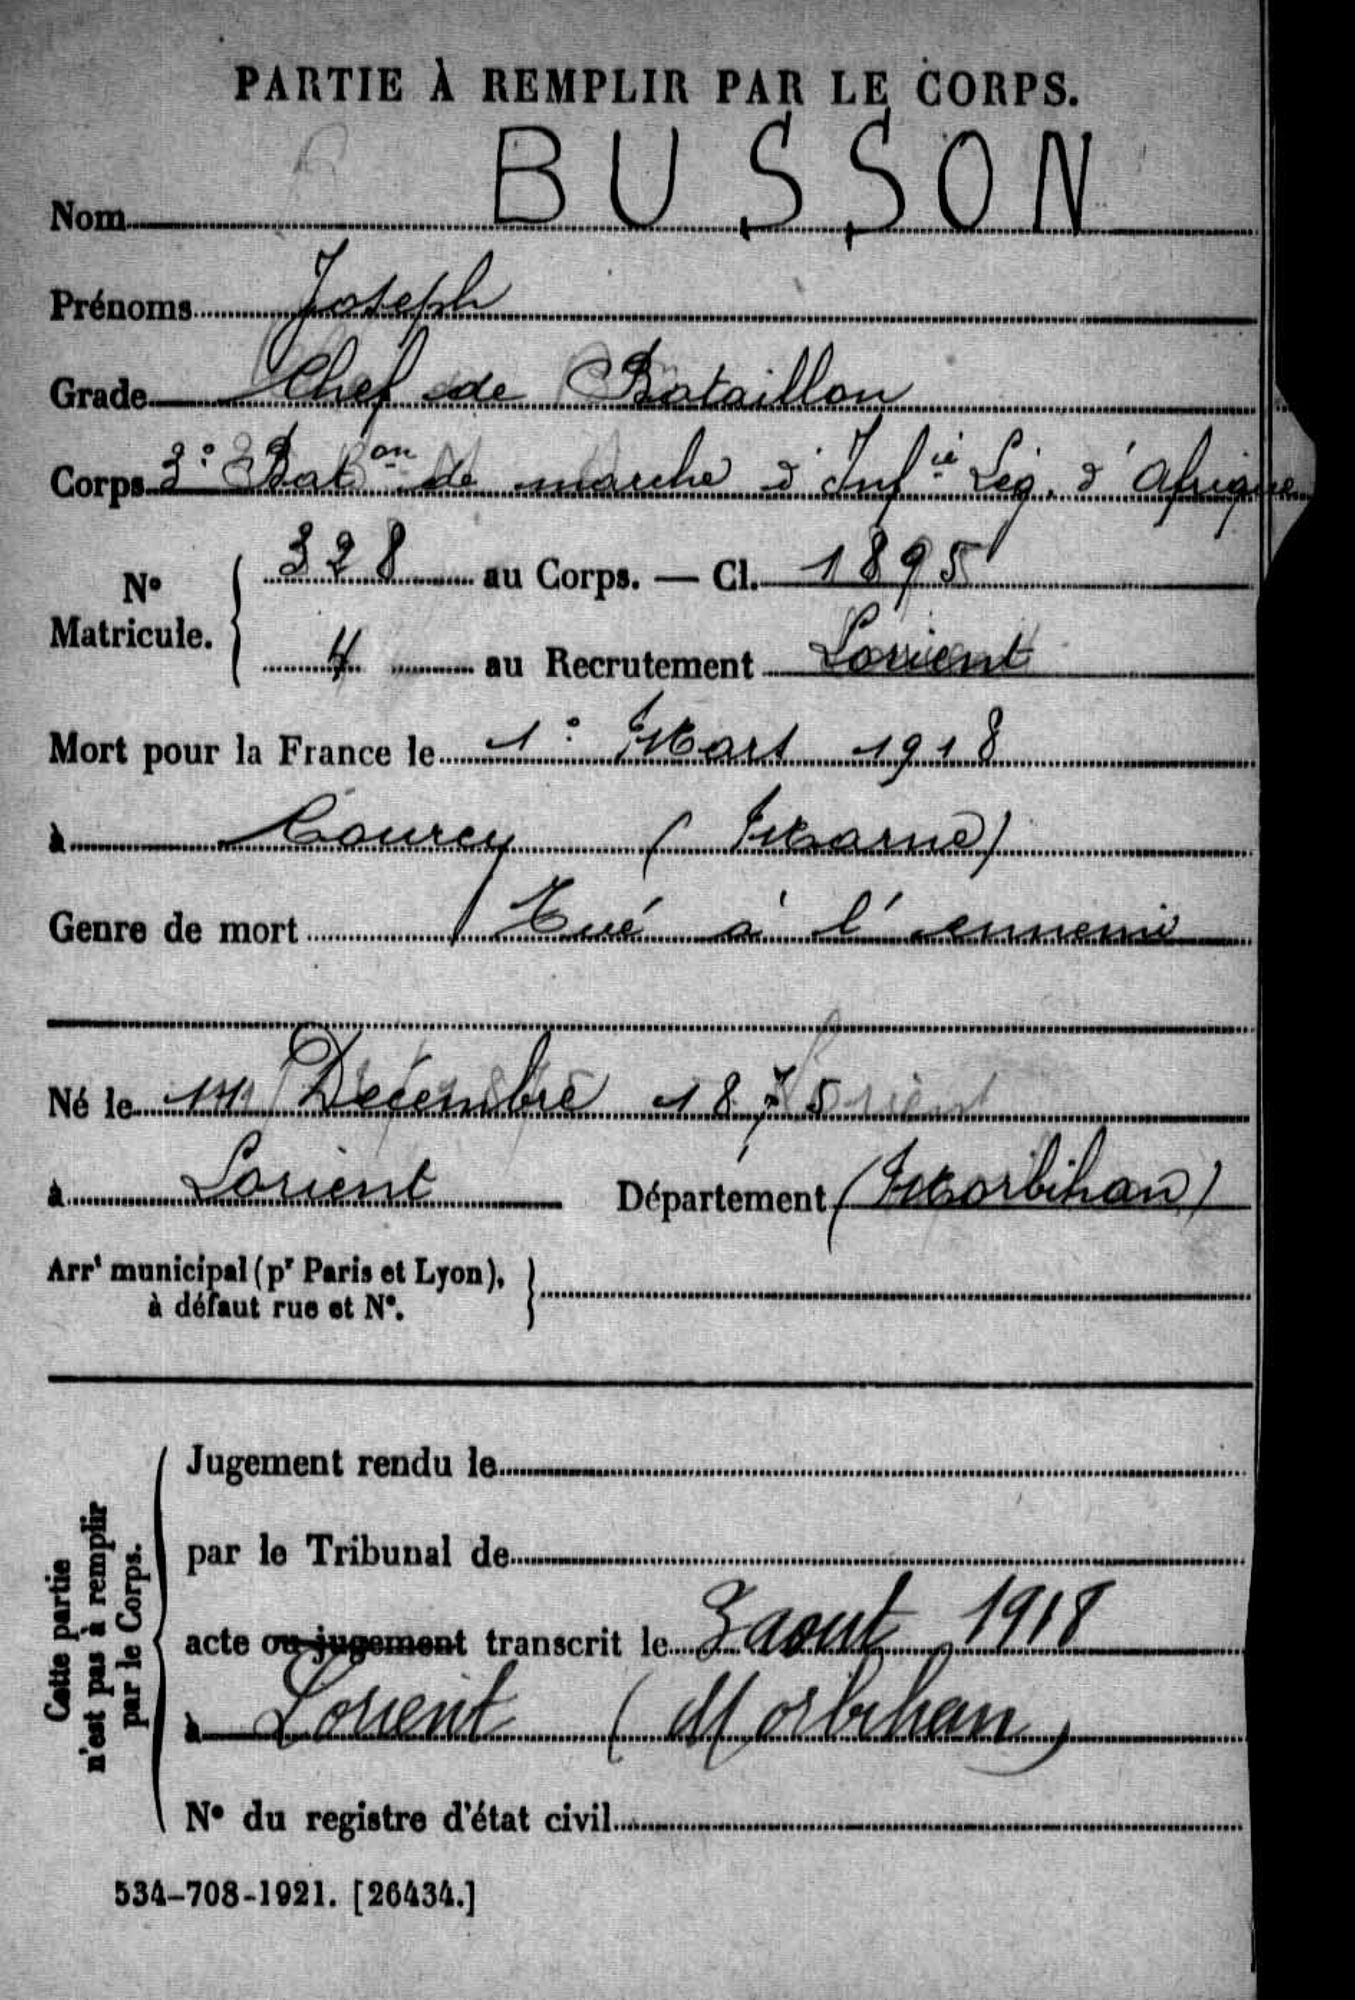 PARTIE À REMPLIR PAR LE CORPS.
Nom BUSSON
Prénoms Joseph
Grade Chef de Bataillon
Corps 3e Bat.on de marche d'Inf.ie Lég. d'Afrique
No Matricule. { 328 au Corps. — Cl. 1895
4 au Recrutement Lorient
Mort pour la France le 1e Mars 1918
à Courcy (Marne)
Genre de mort Tué à l'ennemi
Né le 14 Décembre 1875
à Lorient Département (Morbihan)
Arrt municipal (pr Paris et Lyon), }
à défaut rue et No.
Cette partie
n'est pas à remplir
par le Corps.
Jugement rendu le
par le Tribunal de
acte ou jugement transcrit le 3 aout 1918
à Lorient (Morbihan)
No du registre d'état civil
534-708-1921. [26434.]